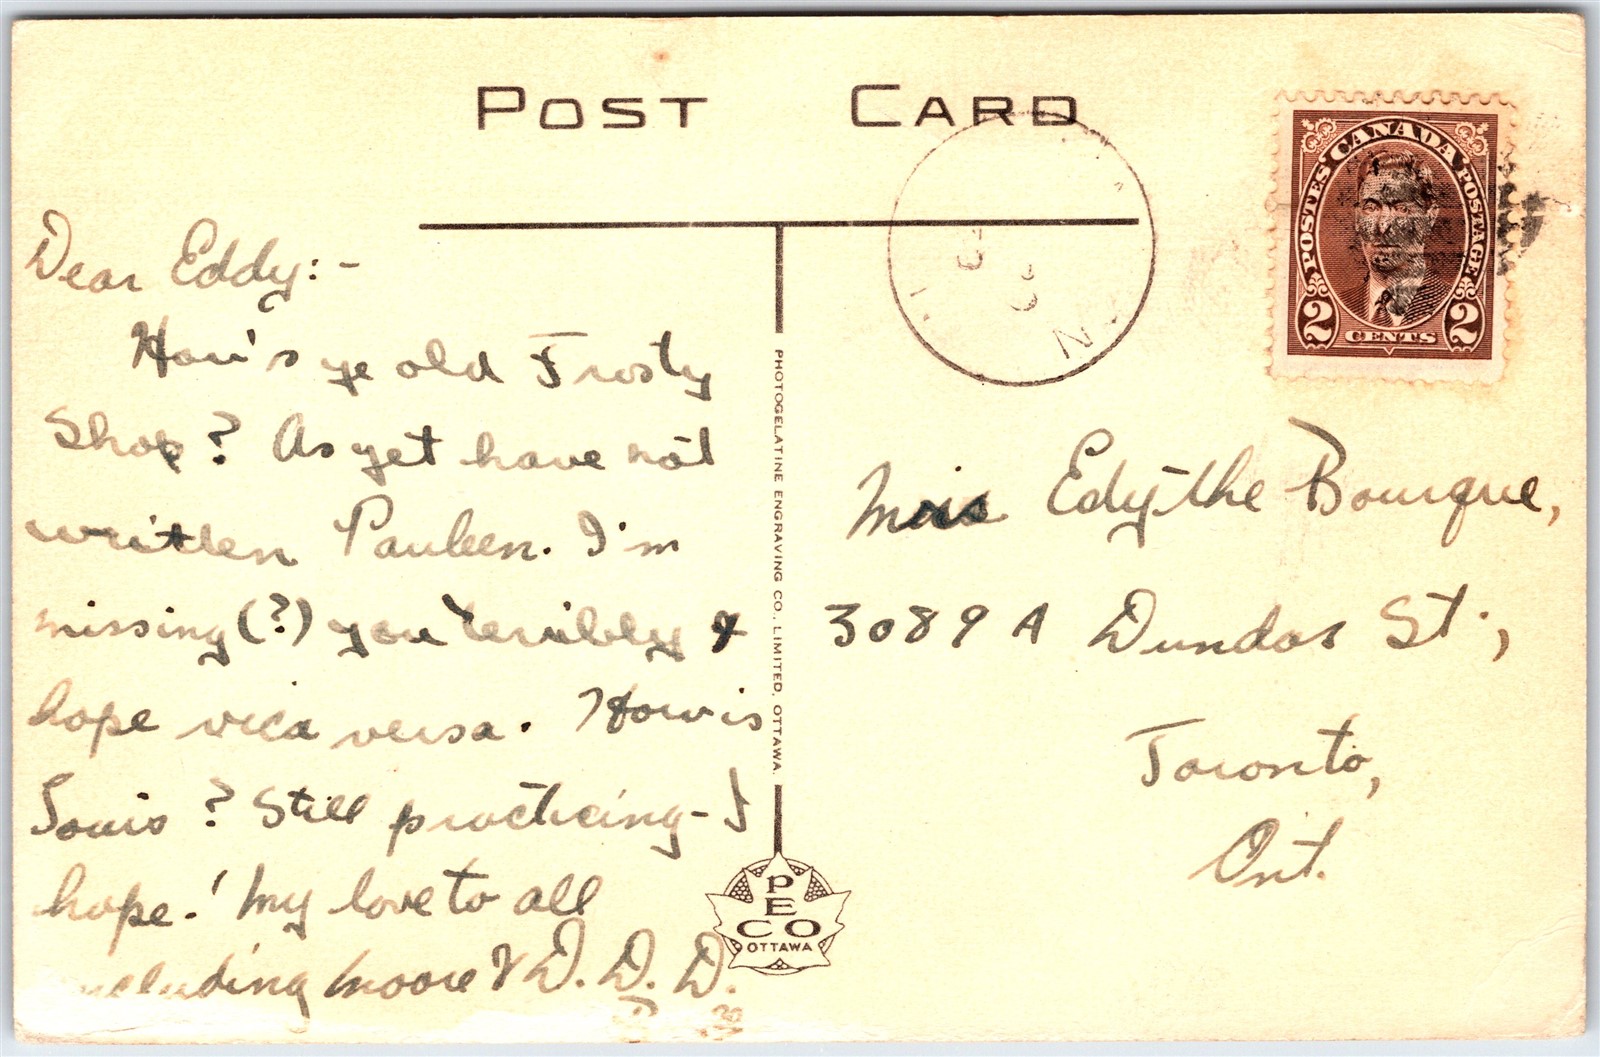 POST CARD
CANADA
POSTES POSTAGE
2 CENTS 2
Dear Eddy:-
How's ye old Frosty
Shop? As yet have not
written Pauleen. I'm
missing(?) you terribly &
hope vica versa. How is
Louis? Still practicing- I
hope! My love to all
including Moore & D. D. D.
PHOTOGELATINE ENGRAVING CO., LIMITED, OTTAWA.
PECO
OTTAWA
Miss Edythe Bourque,
3089 A Dundas St.,
Toronto,
Ont.